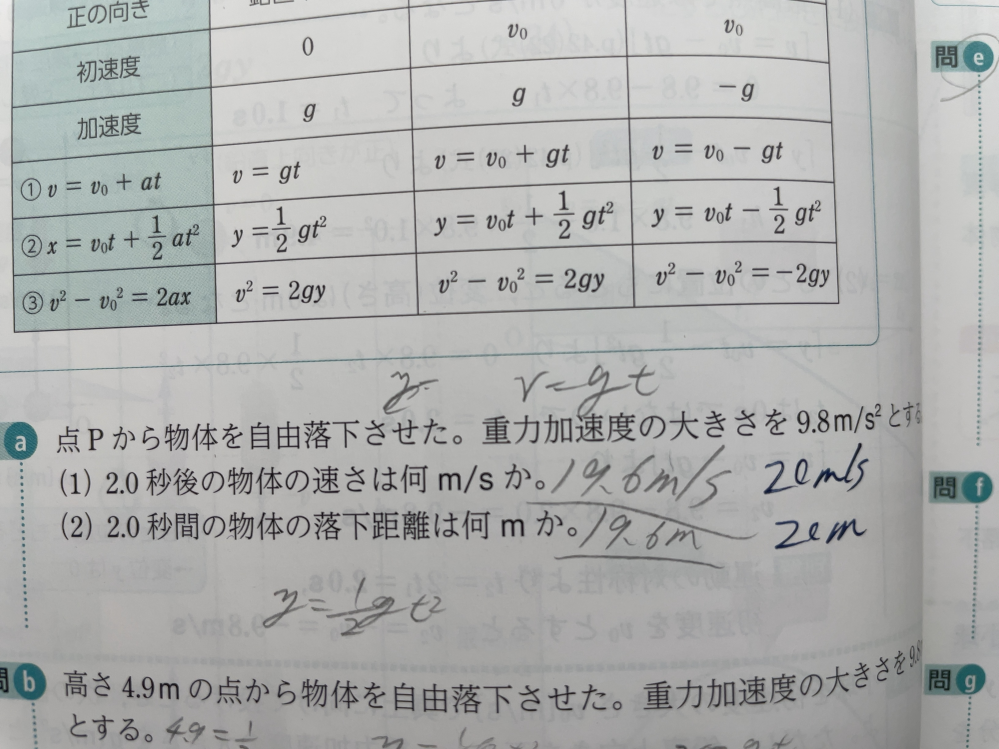 正の向き
初速度 0 v₀ v₀
加速度 g g −g
① v = v₀ + at v = gt v = v₀ + gt v = v₀ − gt
② x = v₀t + 1/2 at² y = 1/2 gt² y = v₀t + 1/2 gt² y = v₀t − 1/2 gt²
③ v² − v₀² = 2ax v² = 2gy v² − v₀² = 2gy v² − v₀² = −2gy
y= v=gt
a 点Pから物体を自由落下させた。重力加速度の大きさを9.8m/s²とす
(1) 2.0秒後の物体の速さは何m/sか。19.6m/s 20m/s
(2) 2.0秒間の物体の落下距離は何mか。19.6m 20m
y=1/2gt²
問b 高さ4.9mの点から物体を自由落下させた。重力加速度の大きさを9.8
とする。4.9=1/2
問e
問f
問g